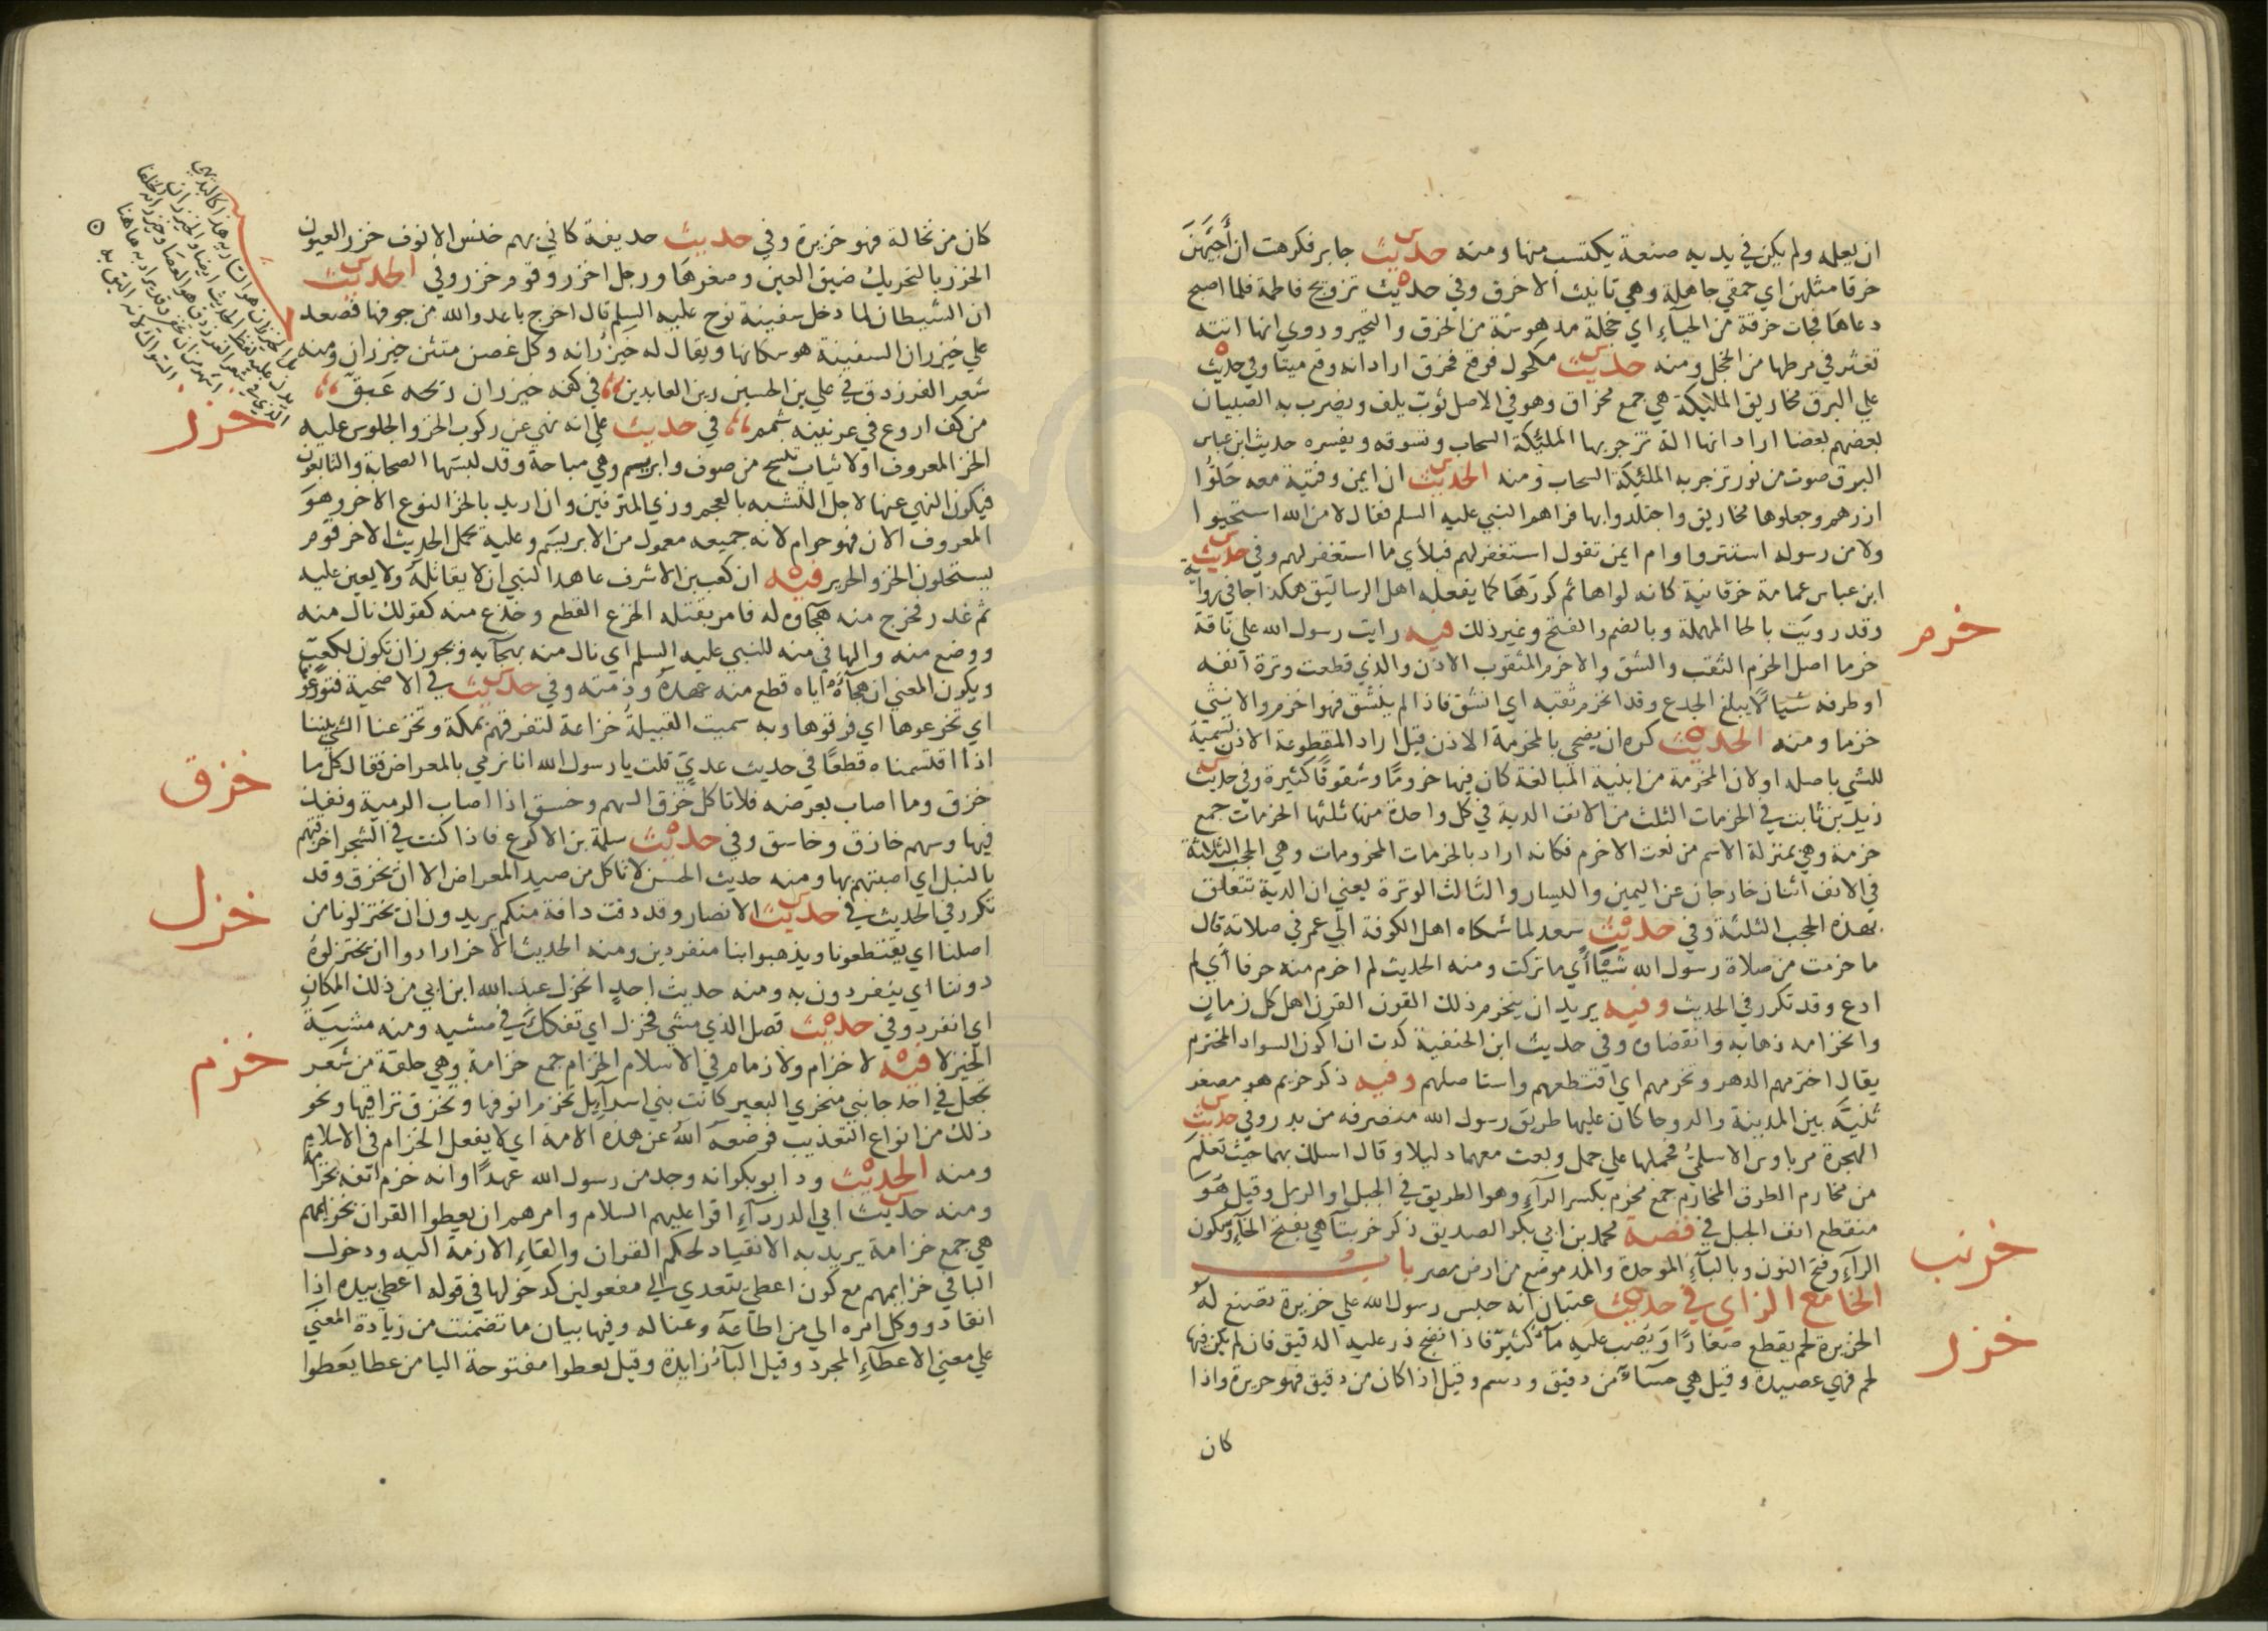 ان يعلمه ولم يكن في يديه صنعة يكتسب منها ومنه حديث جابر فكرهت ان أجيئهن
خرقا مثلهن اي حمقي جاهلة وهي تانيث الاخرق وفي حديث تزويج فاطمة فلما اصبح
دعاها فجات خرقة من الحياء اي خجلة مدهوشة من الخرق والتحير وروي انها اتته
تعثر في مرطها من الخجل ومنه حديث مكحول فوقع فخرق اراد انه وقع ميتا وفي حديث
علي البرق مخاريق الملايكة هي جمع مخراق وهو في الاصل ثوب يلف ويضرب به الصبيان
بعضهم بعضا اراد انها الة تزجر بها المليكة السحاب وتسوقه ويفسره حديث ابن عباس
البرق صوت من نور تزجر به المليكة السحاب ومنه الحديث ان ايمن وفتية معه حلوا
ازرهم وجعلوها مخاريق واجتلدوا بها فراهم النبي عليه السلم فقال لا من الله استحيوا
ولا من رسوله استتروا وام ايمن تقول استغفر لهم فبلأي ما استغفر لهم وفي حديث
ابن عباس عمامة خرقانية كانه لواها ثم كورها كما يفعله اهل الرساتيق هكذا جا في رواية
وقد رويت بالحا المهملة وبالضم والفتح وغير ذلك فيه رايت رسول الله علي ناقة
خرم
خرما اصل الخرم الثقب والشق والاخرم المثقوب الاذن والذي قطعت وترة انفه
او طرفه شيا لا يبلغ الجدع وقد انخرم ثقبه اي انشق فاذا لم ينشق فهو اخزم والانثي
خزما ومنه الحديث كره ان يضحي بالمخرمة الاذن قيل اراد المقطوعة الاذن تسمية
للشي باصله او لان المخرمة من ابنية المبالغة كان فيها خروما وشقوقا كثيرة وفي حديث
زيد بن ثابت في الخرمات الثلث من الانف الدية في كل واحدة منها ثلثها الخرمات جمع
خرمة وهي بمنزلة الاسم من نعت الاخرم فكانه اراد بالخرمات المخرومات وهي الحجب الثلاثة
في الانف اثنان خارجان عن اليمين واليسار والثالث الوترة يعني ان الدية تتعلق
بهذه الحجب الثلثة وفي حديث سعد لما شكاه اهل الكوفة الي عمر في صلاته قال
ما خرمت من صلاة رسول الله شيئا أي ما تركت ومنه الحديث لم اخرم منه حرفا أي لم
ادع وقد تكرر في الحديث وفيه يريد ان ينخرم ذلك القرن القرن اهل كل زمان
وانخرامه ذهابه وانقضاوه وفي حديث ابن الحنفية كدت ان اكون السواد المخترم
يقال اخترمهم الدهر وتخرمهم اي اقتطعهم واستاصلهم وفيه ذكر خريم هو مصغر
ثنية بين المدينة والروحا كان عليها طريق رسول الله منصرفه من بدر وفي حديث
الهجرة مر باوس الاسلمي فحملها علي جمل وبعث معهما دليلا وقال اسلك بهما حيث تعلم
من مخارم الطرق المخارم جمع مخرم بكسر الرآء وهو الطريق في الجبل او الرمل وقيل هو
منقطع انف الجبل في قصة محمد بن ابي بكر الصديق ذكر خرنبآ هي بفتح الخاء وسكون
خرنب
الرآء وفتح النون وبالبآء الموحدة والمد موضع من ارض مصر باب
الخا مع الزاي في حديث عتبان انه حبس رسول الله علي خزيرة تصنع له
الخزيرة لحم يقطع صغارا ويصب عليه مآء كثير فاذا نضج ذر عليه الدقيق فان لم يكن فيها
خزر
لحم فهي عصيدة وقيل هي حسآء من دقيق ودسم وقيل اذا كان من دقيق فهو حريرة واذا
كان
كان من نخالة فهو خزيرة وفي حديث حذيفة كاني بهم خنس الانوف خزر العيون
الخزر بالتحريك ضيق العين وصغرها ورجل اخزر وقوم خزر وفي الحديث
ان الشيطان لما دخل سفينة نوح عليه السلم قال اخرج يا عدو الله من جوفها فصعد
علي خيزران السفينة هو سكانها ويقال له خيزرانه وكل غصن متثن خيزران ومنه
شعر الفرزدق في علي بن الحسين زين العابدين في كفه خيزران ريحه عبق
من كف اروع في عرنينه شمم في حديث علي انه نهي عن ركوب الخز والجلوس عليه
خزز
الخز المعروف اولا ثياب تنسج من صوف وابريسم وهي مباحة وقد لبستها الصحابة والتابعون
فيكون النهي عنها لاجل التشبه بالعجم وزي المترفين وان اريد بالخز النوع الاخر وهو
المعروف الان فهو حرام لانه جميعه معمول من الابريسم وعليه يحمل الحديث الاخر قوم
يستحلون الخز والحرير فيه ان كعب بن الاشرف عاهد النبي ان لا يقاتله ولا يعين عليه
ثم غدر فخرج منه هجاوه له فامر بقتله الخزع القطع وخزع منه كقولك نال منه
ووضع منه والها في منه للنبي عليه السلم اي نال منه بهجآيه ويجوز ان تكون لكعب
ويكون المعني ان هجآءه اياه قطع منه عهده وذمته وفي حديث في الاضحية فتوزعو
اي تخزعوها اي فرقوها وبه سميت القبيلة خزاعة لتفرقهم بمكة وتخزعنا الشي بيننا
اذا اقتسمناه قطعا في حديث عدي قلت يا رسول الله انا نرمي بالمعراض فقال كل ما
خزق
خزق وما اصاب بعرضه فلا تاكل خزق السهم وخسق اذا اصاب الرمية ونفذ
فيها وسهم خازق وخاسق وفي حديث سلمة بن الاكوع فاذا كنت في الشجر اخزقتهم
بالنبل اي اصبتهم بها ومنه حديث الحسن لا تاكل من صيد المعراض الا ان يخزق وقد
تكرر في الحديث في حديث الانصار وقد دفت دافة منكم يريدون ان يختزلونا من
خزل
اصلنا اي يقتطعونا ويذهبوا بنا منفردين ومنه الحديث الاخر ارادوا ان يختزلوه
دوننا اي ينفردون به ومنه حديث احد انخزل عبد الله ابن ابي من ذلك المكان
اي انفرد وفي حديث قصل الذي مشي فخزل اي تفكك في مشيه ومنه مشية
الخيزلا فيه لا خزام ولا زمام في الاسلام الخزام جمع خزامة وهي حلقة من شعر
خزم
تجعل في احد جانبي منخري البعير كانت بني اسرآيل تخزم انوفها وتخرق تراقيها ونحو
ذلك من انواع التعذيب فوضعه الله عن هذه الامة اي لا يفعل الخزام في الاسلام
ومنه الحديث ود ابو بكر انه وجد من رسول الله عهدا وانه خزم انفه بخزامة
ومنه حديث ابي الدردآء اقرا عليهم السلام وامرهم ان يعطوا القران بخزايمهم
هي جمع خزامة يريد به الانقياد لحكم القران والقاء الازمة اليه ودخول
البا في خزايمهم مع كون اعطي يتعدي الي مفعولين كدخولها في قوله اعطي بيده اذا
انقاد ووكل امره الي من اطاعه وعنا له وفيها بيان ما تضمنت من زيادة المعني
علي معني الاعطآء المجرد وقيل البآء زايدة وقيل يعطوا مفتوحة اليا من عطا يعطوا